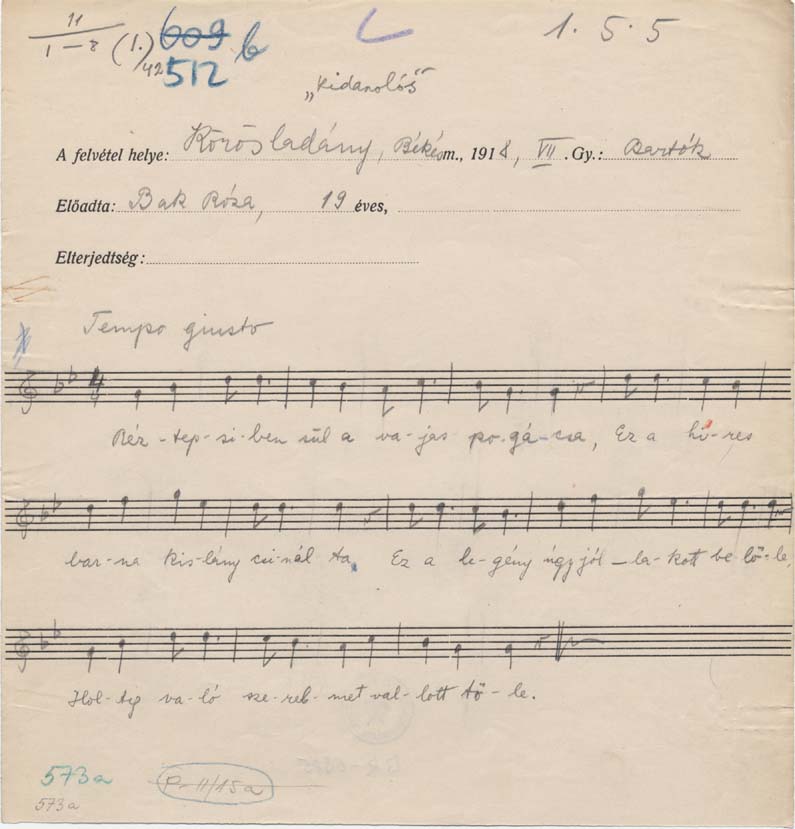 11
1–8 (1.) 609 b
/42 512
1. 5. 5
„Kidanolós"
A felvétel helye: Körösladány, Békésm., 1918, VII. Gy.: Bartók
Előadta: Bak Róza, 19 éves,
Elterjedtség:
Tempo giusto
4
Réz-tep-si-ben sül a va-jas po-gá-csa, Ez a hi-res
bar-na kis-lány csi-nál-ta, Ez a le-gény úgy jól-la-kott be-lő-le,
Hol-tig va-ló sze-rel-met val-lott tő-le.
573a P. II/15a
573a